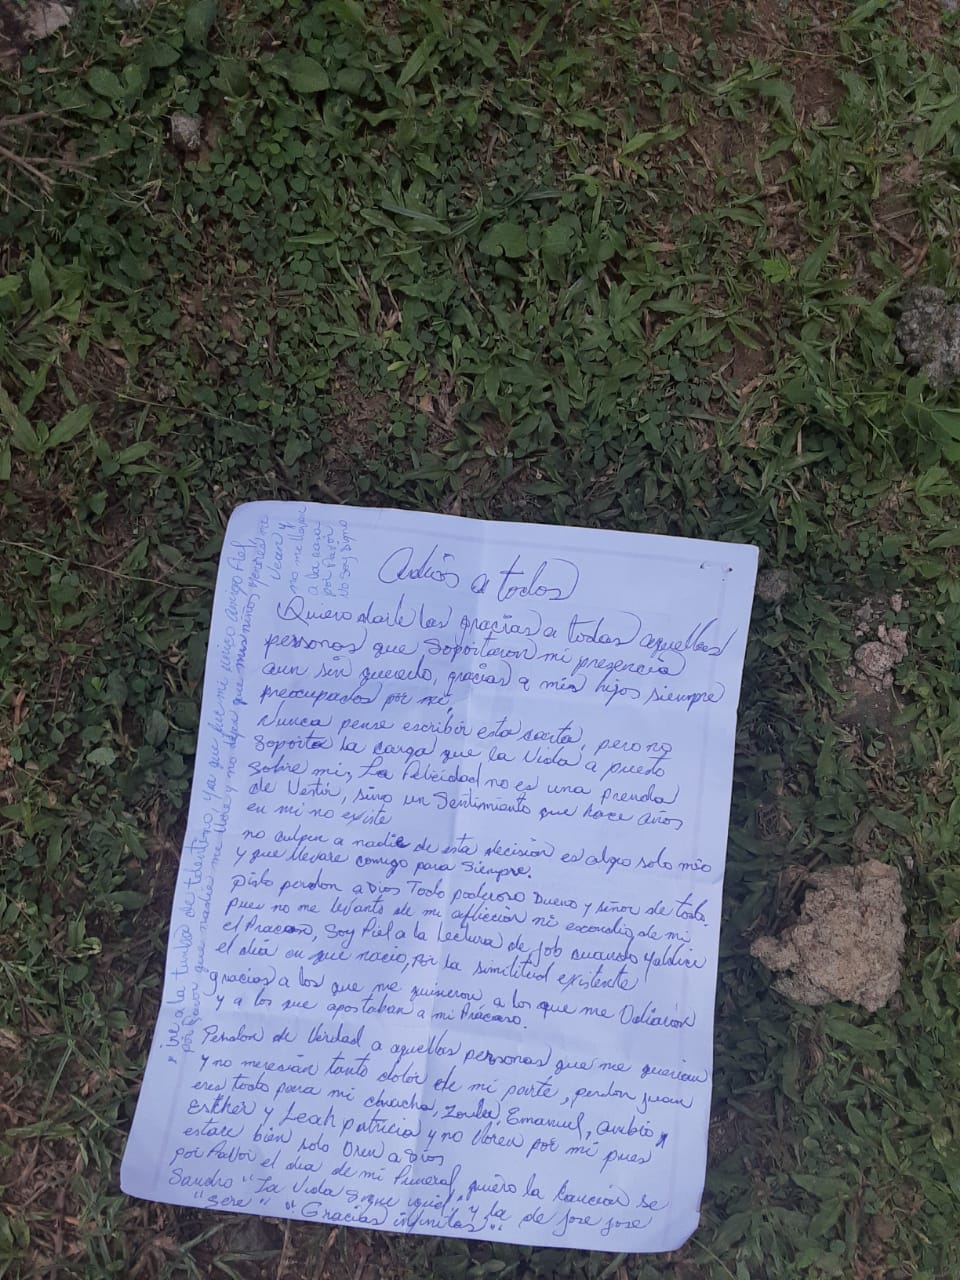 Adiós a todos
Quiero darle las gracias a todas aquellas
personas que Soportaron mi presencia
aun sin quererlo, gracias a mis hijos siempre
preocupados por mi,
Nunca pense escribir esta carta, pero no
Soporto la carga que la Vida a puesto
Sobre mi, La Felicidad no es una prenda
de Vestir, sino un Sentimiento que hace años
en mi no existe
no culpen a nadie de esta decisión es algo solo mio
y que llevare conmigo para Siempre.
pido perdon a Dios Todo poderoso Dueño y señor de todo
pues no me levanto de mi aflicción ni escondio de mi
el Fracaso, Soy Fiel a la Lectura de job cuando Maldice
el dia en que nacio, por la similitud existente
gracias a los que me quisieron a los que me Odiaron
y a los que apostaban a mi Fracaso.
Perdon de Verdad a aquellas personas que me querian
y no merecian tanto dolor de mi parte, perdon juan
eres todo para mi Emanuel,
Esther y Leah patricia y no lloren por mi pues
estare bien solo Oren a Dios
por Favor el dia de mi Funeral, quiero la Canción de
Sandro "La Vida Sigue igual" y la de jose jose
"Sere" "Gracias infinitas"
ire a la tumba de , Ya que fue mi unico amigo Fiel
por Favor que nadie me llore y no dejen que mis niños
me
Vean y
no me lleven
a la casa
por Favor
no Soy Digno